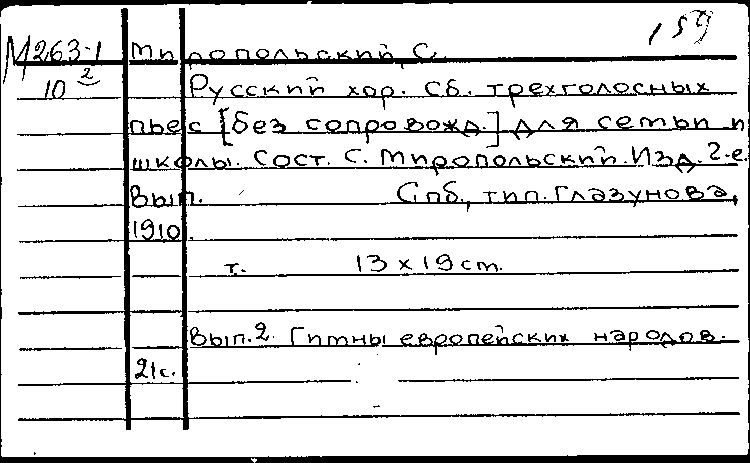 159
М263-1 Миропольский, С.
10 2
Русский хор. Сб. трехголосных
пьес [без сопровожд.] для семьи и
школы. Сост. С. Миропольский. Изд. 2-е.
Вып. Спб., тип. Глазунова,
1910.
т. 13 x 19 cm.
Вып.2. Гимны европейских народов.
21с.